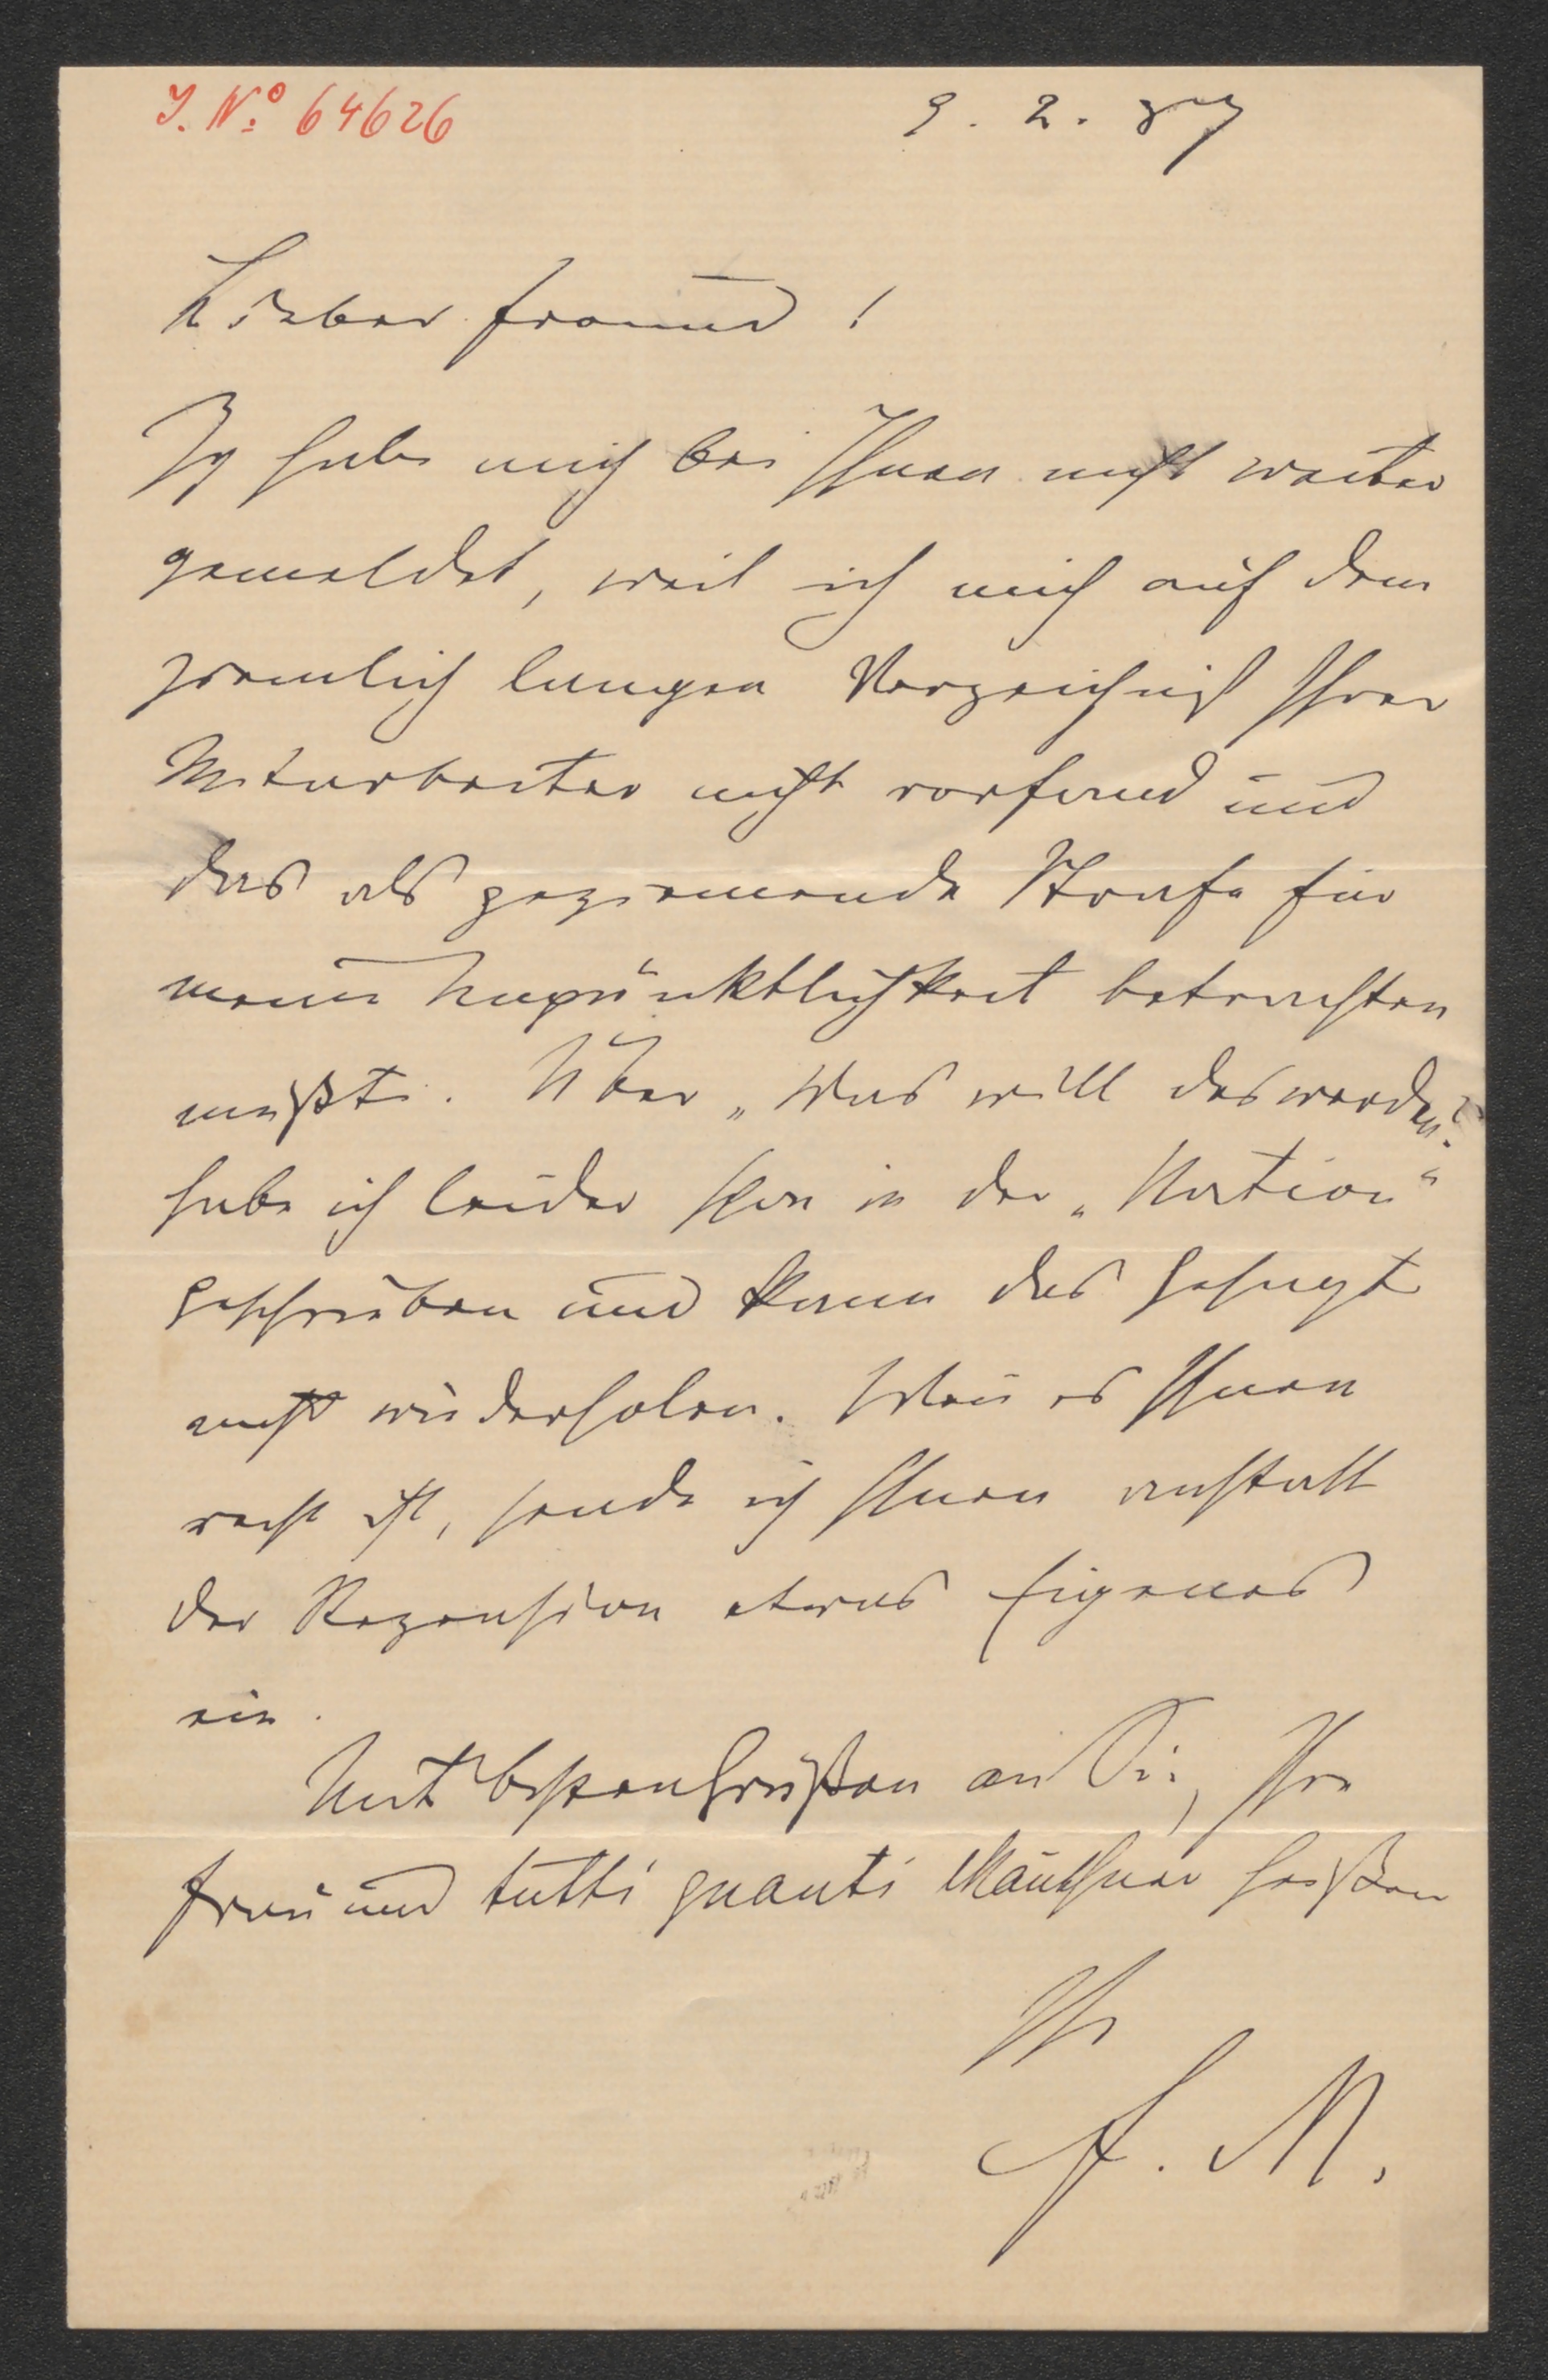 J. No. 64626
9. 2. 87
Lieber Freund!
Ich habe mich bei Ihnen nicht weiter
gemeldet, weil ich mich auf dem
ziemlich langen Verzeichniß Ihrer
Mitarbeiter nicht vorfand und
das als geziemende Strafe für
meine Unpünktlichkeit betrachten
mußte. Über „Was will das werden?
habe ich leider schon in der „Nation“
geschrieben und kann das Gesagte
nicht wiederholen. Wenn es Ihnen
recht ist, sende ich Ihnen anstatt
der Rezension etwas Eigenes
ein.
Mit besten Grüßen an Sie, Ihre
Frau und tutti quanti Mauthner heißen
Ihr
F. M.